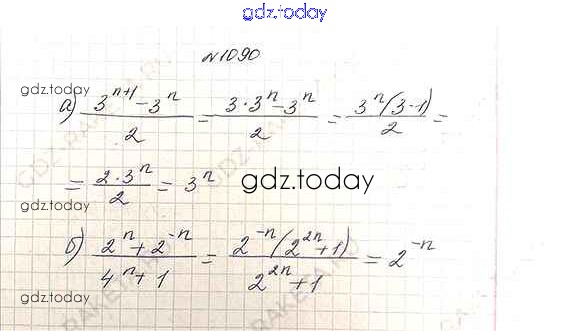 gdz.today
№1090
gdz.today
а) (3^(n+1) - 3^n)/2 = (3·3^n - 3^n)/2 = (3^n(3-1))/2 =
= (2·3^n)/2 = 3^n
gdz.today
gdz.today
б) (2^n + 2^(-n))/(4^n + 1) = (2^(-n)(2^(2n) + 1))/(2^(2n) + 1) = 2^(-n)
gdz.today